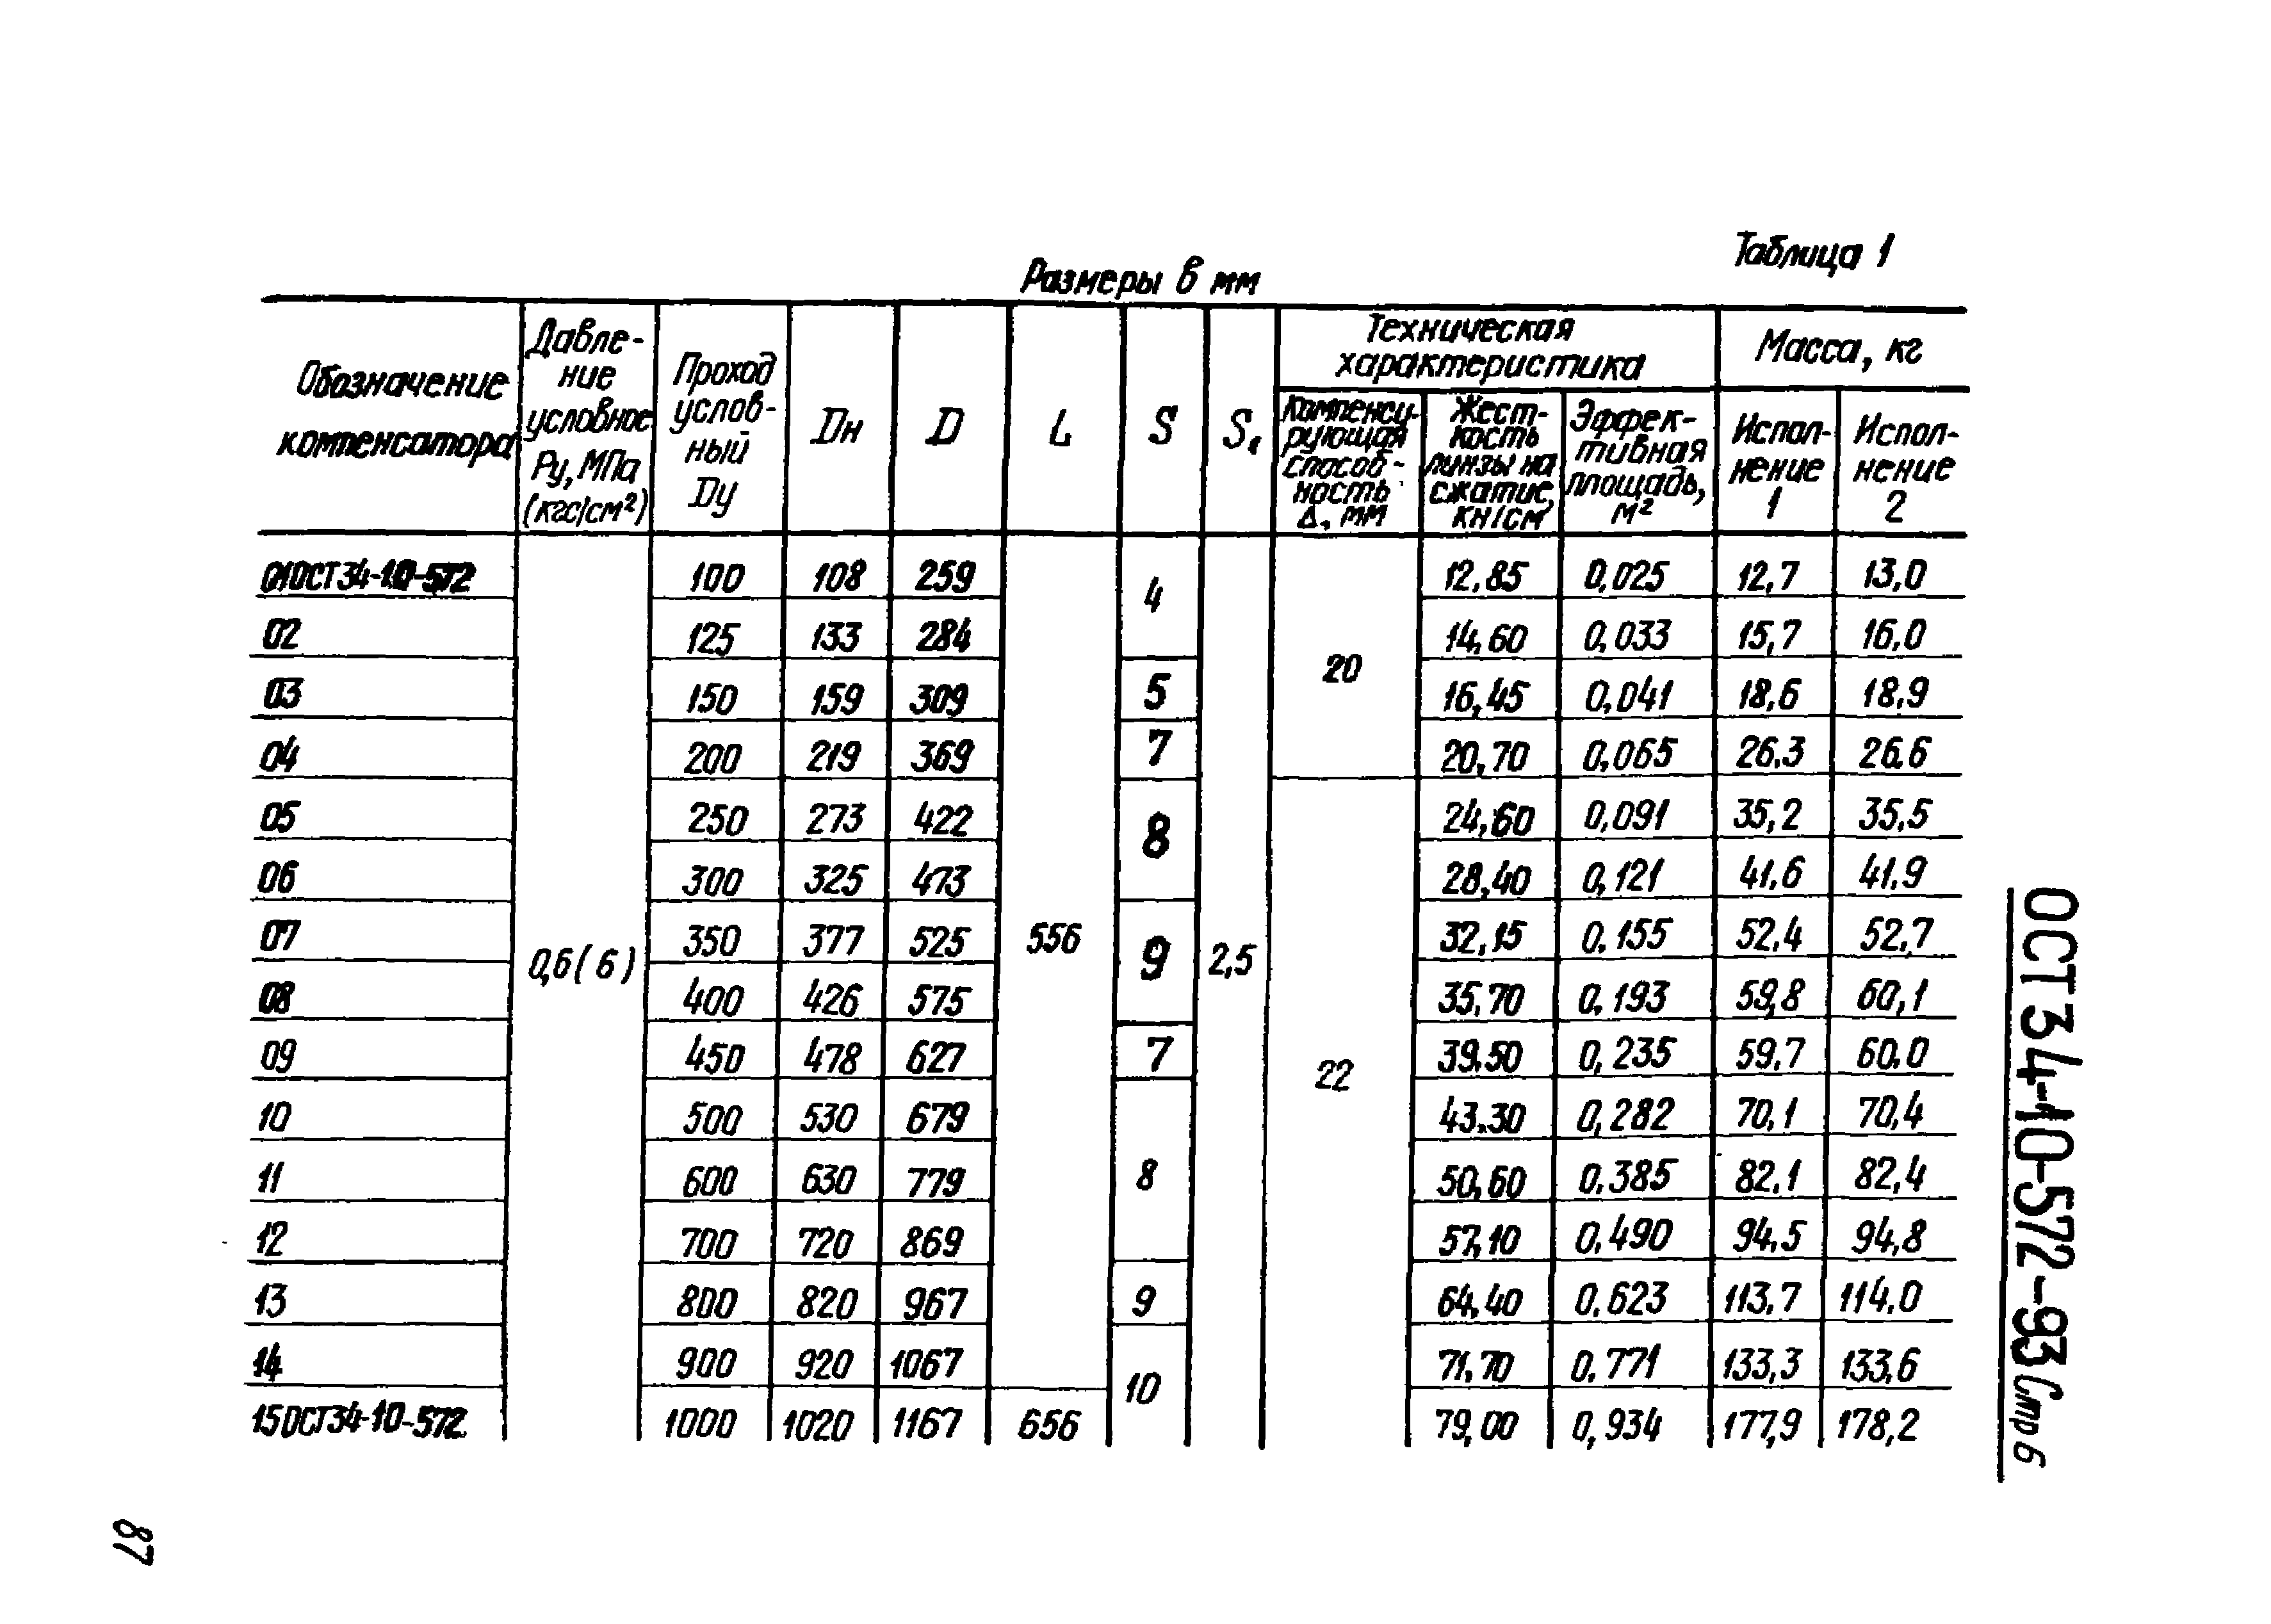 Таблица 1
Размеры в мм
Обозначение компенсатора | Давление условное Ру, МПа (кгс/см²) | Проход условный Dу | Dн | D | L | S | S₁ | Техническая характеристика | Масса, кг
Компенсирующая способность Δ, мм | Жесткость линзы на сжатие, кН/см | Эффективная площадь, м² | Исполнение 1 | Исполнение 2
01 ОСТ 34-10-572 | 0,6 (6) | 100 | 108 | 259 | 556 | 4 | 2,5 | 20 | 12,85 | 0,025 | 12,7 | 13,0
02 | 125 | 133 | 284 | 14,60 | 0,033 | 15,7 | 16,0
03 | 150 | 159 | 309 | 5 | 16,45 | 0,041 | 18,6 | 18,9
04 | 200 | 219 | 369 | 7 | 20,70 | 0,065 | 26,3 | 26,6
05 | 250 | 273 | 422 | 8 | 22 | 24,60 | 0,091 | 35,2 | 35,5
06 | 300 | 325 | 473 | 28,40 | 0,121 | 41,6 | 41,9
07 | 350 | 377 | 525 | 9 | 32,15 | 0,155 | 52,4 | 52,7
08 | 400 | 426 | 575 | 35,70 | 0,193 | 59,8 | 60,1
09 | 450 | 478 | 627 | 7 | 39,50 | 0,235 | 59,7 | 60,0
10 | 500 | 530 | 679 | 8 | 43,30 | 0,282 | 70,1 | 70,4
11 | 600 | 630 | 779 | 50,60 | 0,385 | 82,1 | 82,4
12 | 700 | 720 | 869 | 57,10 | 0,490 | 94,5 | 94,8
13 | 800 | 820 | 967 | 9 | 64,40 | 0,623 | 113,7 | 114,0
14 | 900 | 920 | 1067 | 10 | 71,70 | 0,771 | 133,3 | 133,6
15 ОСТ 34-10-572 | 1000 | 1020 | 1167 | 656 | 79,00 | 0,934 | 177,9 | 178,2
ОСТ 34-10-572-93 Стр 6
87